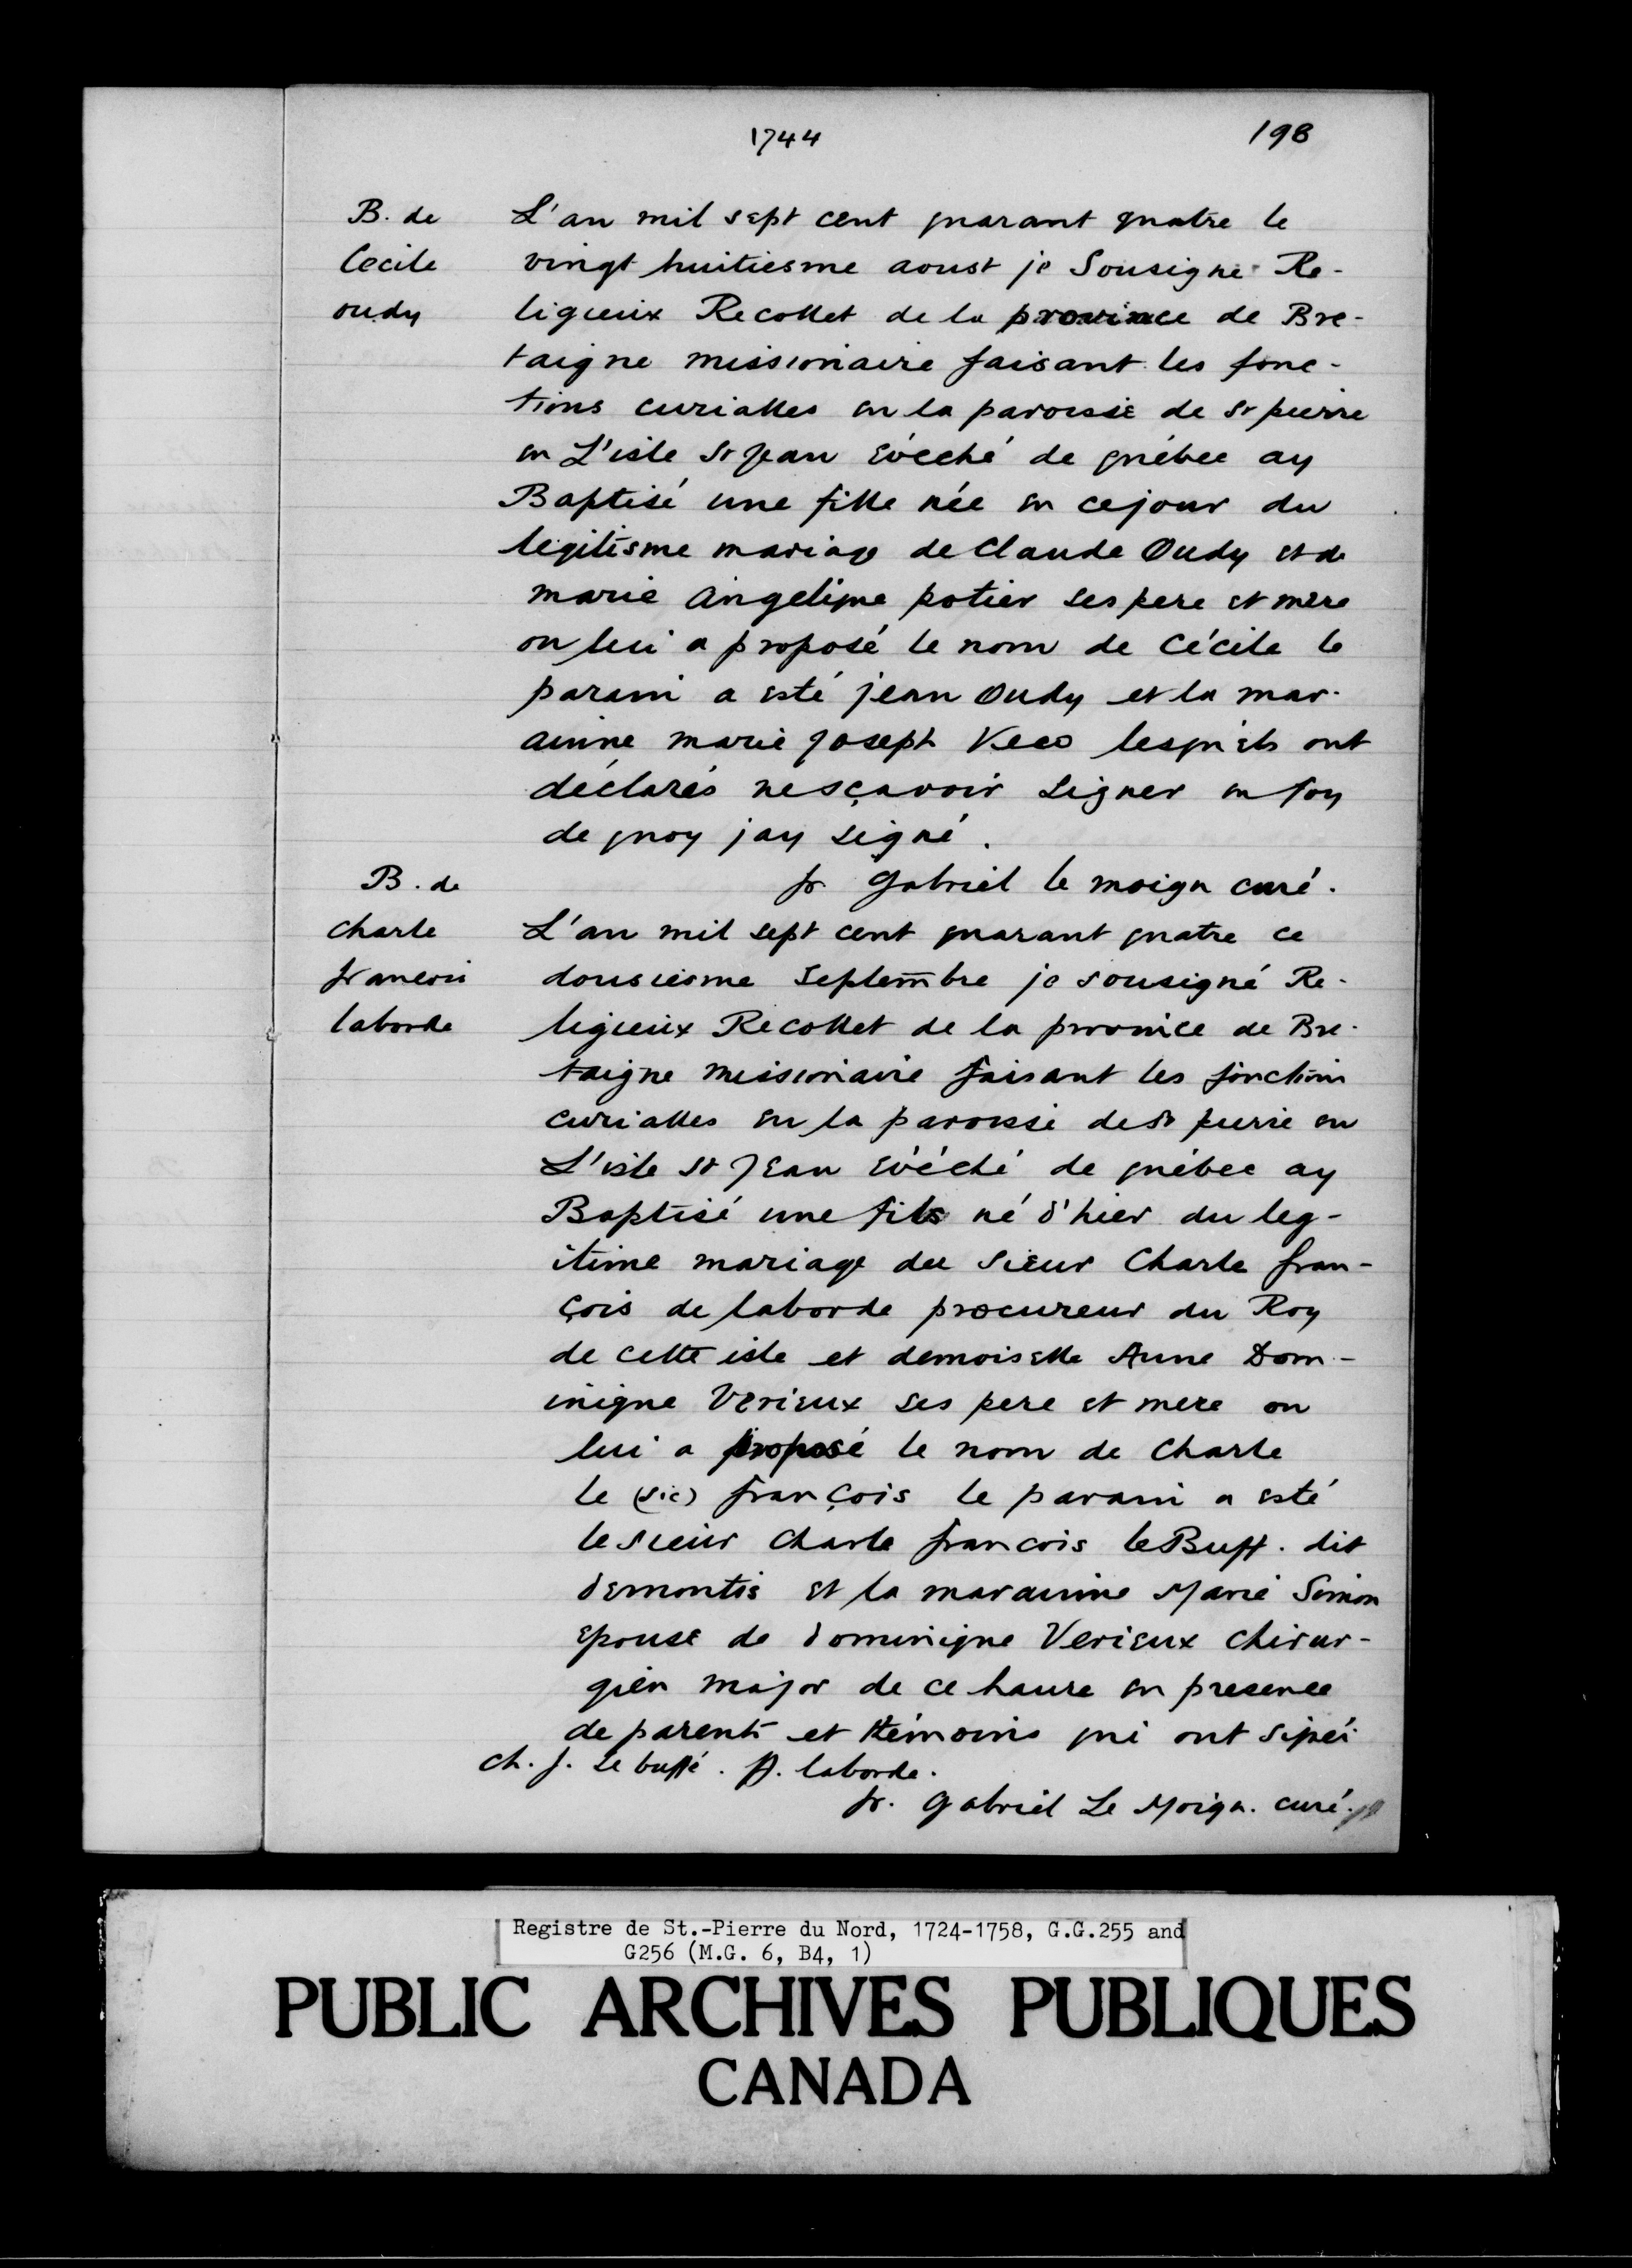 1744
198
B. de
Cecile
oudy
L'an mil sept cent quarant quatre le
vingt huitiesme aoust je Sousigné Re-
ligieux Recollet de la province de Bre-
taigne missionaire faisant les fonc-
tions curialles en la paroissie de St pierre
en L'isle St Jean Evêché de québec ay
Baptisé une fille née en cejour du
legitisme mariage de Claude Oudy et de
marie angelique potier ses pere et mere
on lui a proposé le nom de Cécile le
parain a esté jean Oudy et la mar-
ainne marie Joseph Veco lesquels ont
déclarés nesçavoir signer en foy
de quoy jay signé.
fr Gabriel le moign curé.
B. de
charle
francois
laborde
L'an mil sept cent quarant quatre ce
dousiesme Septembre je sousigné Re-
ligieux Recollet de la province de Bre-
taigne missionaire faisant les fonction
curialles en la paroissi de St pierre en
L'isle St Jean Evêché de québec ay
Baptisé une fils né d'hier du leg-
itime mariage du Sieur Charle fran-
çois de laborde procureur du Roy
de cette isle et demoiselle Anne Dom-
inique Verieux ses pere et mere on
lui a proposé le nom de Charle
le (sic) françois le parain a esté
le sieur Charle francois le Buff. dit
demontis et la marainne Marie Simon
epouse de dominique Verieux chirur-
gien major de ce havre en presence
de parents et témoins qui ont signé
ch. f. Le buffé. A. laborde.
fr. Gabriel Le Moign. curé.
Registre de St.-Pierre du Nord, 1724-1758, G.G.255 and
G256 (M.G. 6, B4, 1)
PUBLIC ARCHIVES PUBLIQUES
CANADA